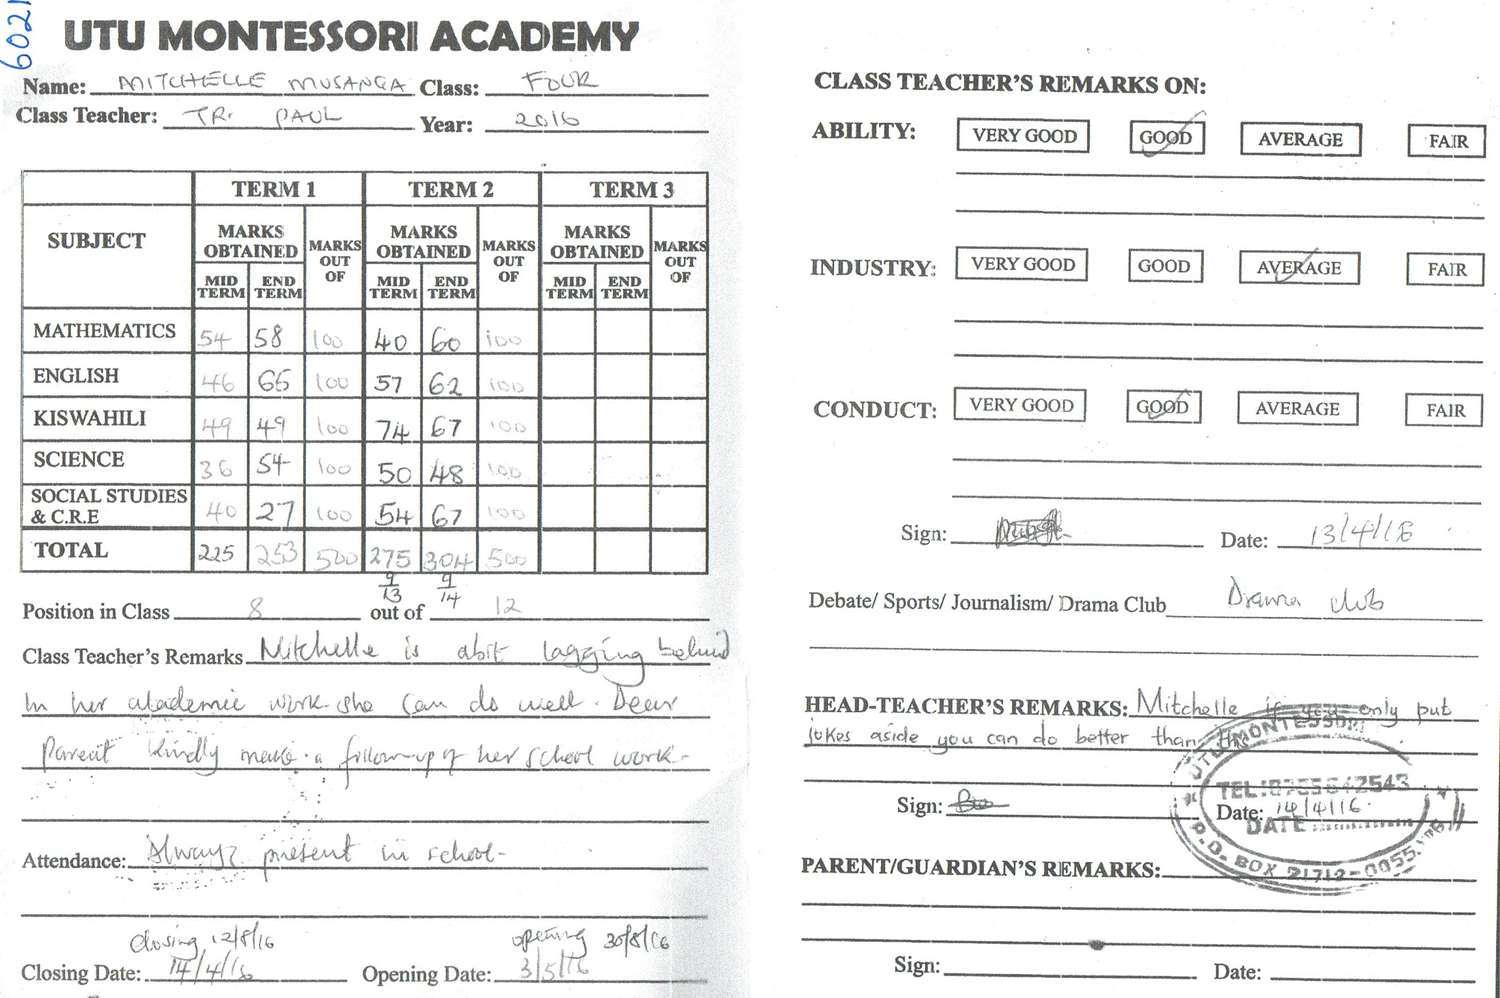 6021
UTU MONTESSORI ACADEMY
Name: MITCHELLE MUSANGA Class: FOUR
Class Teacher: TR. PAUL Year: 2016
TERM 1 TERM 2 TERM 3
SUBJECT MARKS OBTAINED MARKS OUT OF MARKS OBTAINED MARKS OUT OF MARKS OBTAINED MARKS OUT OF
MID TERM END TERM MID TERM END TERM MID TERM END TERM
MATHEMATICS 54 58 100 40 60 100
ENGLISH 46 65 100 57 62 100
KISWAHILI 49 49 100 74 67 100
SCIENCE 36 54 100 50 48 100
SOCIAL STUDIES & C.R.E 40 27 100 54 67 100
TOTAL 225 253 500 275 304 500
9/13 9/14
Position in Class 8 out of 12
Class Teacher's Remarks Mitchelle is abit lagging behind
In her academic work. she can do well. Dear
Parent kindly make a follow-up of her school work.
Attendance: Always present in school.
closing 12/8/16 opening 30/8/16
Closing Date: 14/4/16 Opening Date: 3/5/16
CLASS TEACHER'S REMARKS ON:
ABILITY: VERY GOOD GOOD AVERAGE FAIR
INDUSTRY: VERY GOOD GOOD AVERAGE FAIR
CONDUCT: VERY GOOD GOOD AVERAGE FAIR
Sign: Date: 13/4/16
Debate/ Sports/ Journalism/ Drama Club Drama club
HEAD-TEACHER'S REMARKS: Mitchelle if you only put
jokes aside you can do better than this.
UTU MONTESSORI
TEL:
Sign: Date: 14/4/16.
DATE
P.O. BOX 21712-0055
PARENT/GUARDIAN'S REMARKS:
Sign: Date: